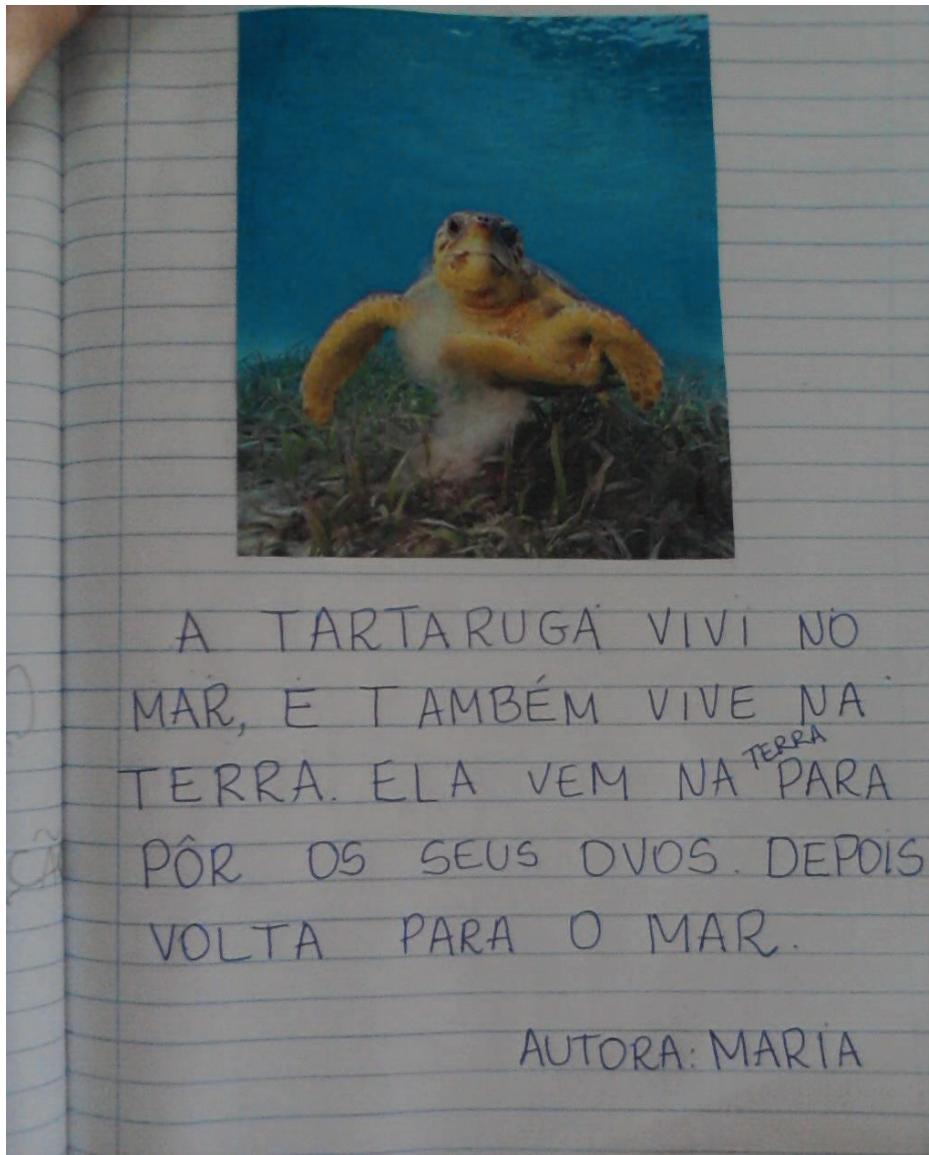 A TARTARUGA VIVI NO
MAR, E TAMBÉM VIVE NA
TERRA. ELA VEM NA TERRA PARA
PÔR OS SEUS OVOS. DEPOIS
VOLTA PARA O MAR.
AUTORA: MARIA